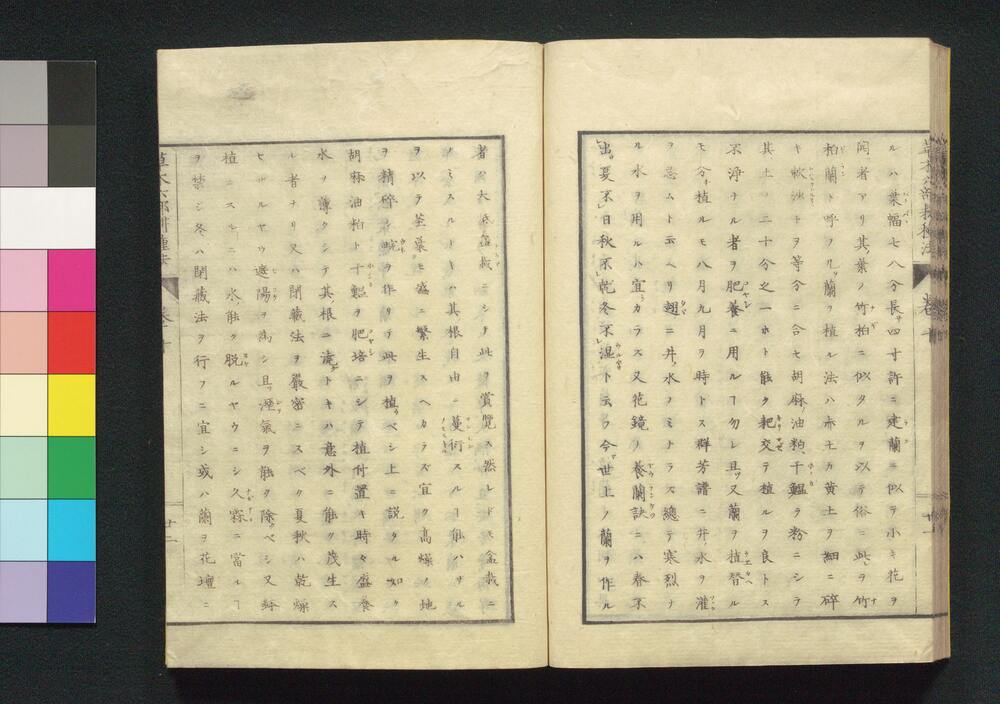 草木六部耕種法 卷十 廿一
ルハ葉幅七八分長サ四寸許ニ建蘭ニ似テ小キ花ヲ
開ク者アリ其葉ノ竹柏ニ似タルヲ以テ俗ニ此ヲ竹
柏蘭ト呼フ凡ソ蘭ヲ植ル法ハ赤土カ黄土ヲ細ニ碎
キ軟沙トヲ等分ニ合セ胡麻油粕干鰮ヲ粉ニシテ
其土ノ二十分之一ホト能ク耙交テ植ルヲ良トス
不淨ナル者ヲ肥養ニ用ルヿ勿レ且ツ又蘭ヲ植替ル
モ分ケ植ルモ八月九月ヲ時トス群芳譜ニ井水ヲ灌
ヲ忌ムト云ヘリ翅ニ井ノ水ノミナラス總テ寒烈ナ
ル水ヲ用ルハ宜カラス又花鏡ノ養蘭訣ニハ春不
出夏不日秋不乾冬不濕ト云フ今世上ノ蘭ヲ作ル
者ハ大抵盆栽ニシテ此ヲ賞覽ス然レドモ盆栽ニ
ノミスルトキハ其根自由ニ蔓衍スルヿ能ハザル
ヲ以テ莖葉モ盛ニ繁生スヘカラズ宜ク高燥ノ地
ヲ精碎シ畹ヲ作リテ此ヲ植ベシ上ニ説タル如ク
胡麻油粕ト干鰮ヲ肥培ニシテ植付置キ時々盛養
水ヲ薄クシテ其根ニ澆トキハ意外ニ能ク茂生ス
ル者ナリ又ハ閉藏法ヲ嚴密ニスベク夏秋ハ乾燥
セザルヤウ遮陽ヲ爲シ且ツ溼氣ヲ能ク除ベシ又鉢
植ニスルニハ水能ク脱ルヤウニシ久霖ニ當ルヿ
ヲ禁シ冬ハ閉藏法ヲ行フニ宜シ或ハ蘭ヲ花壇ニ
草木六部耕種法 卷十 廿二